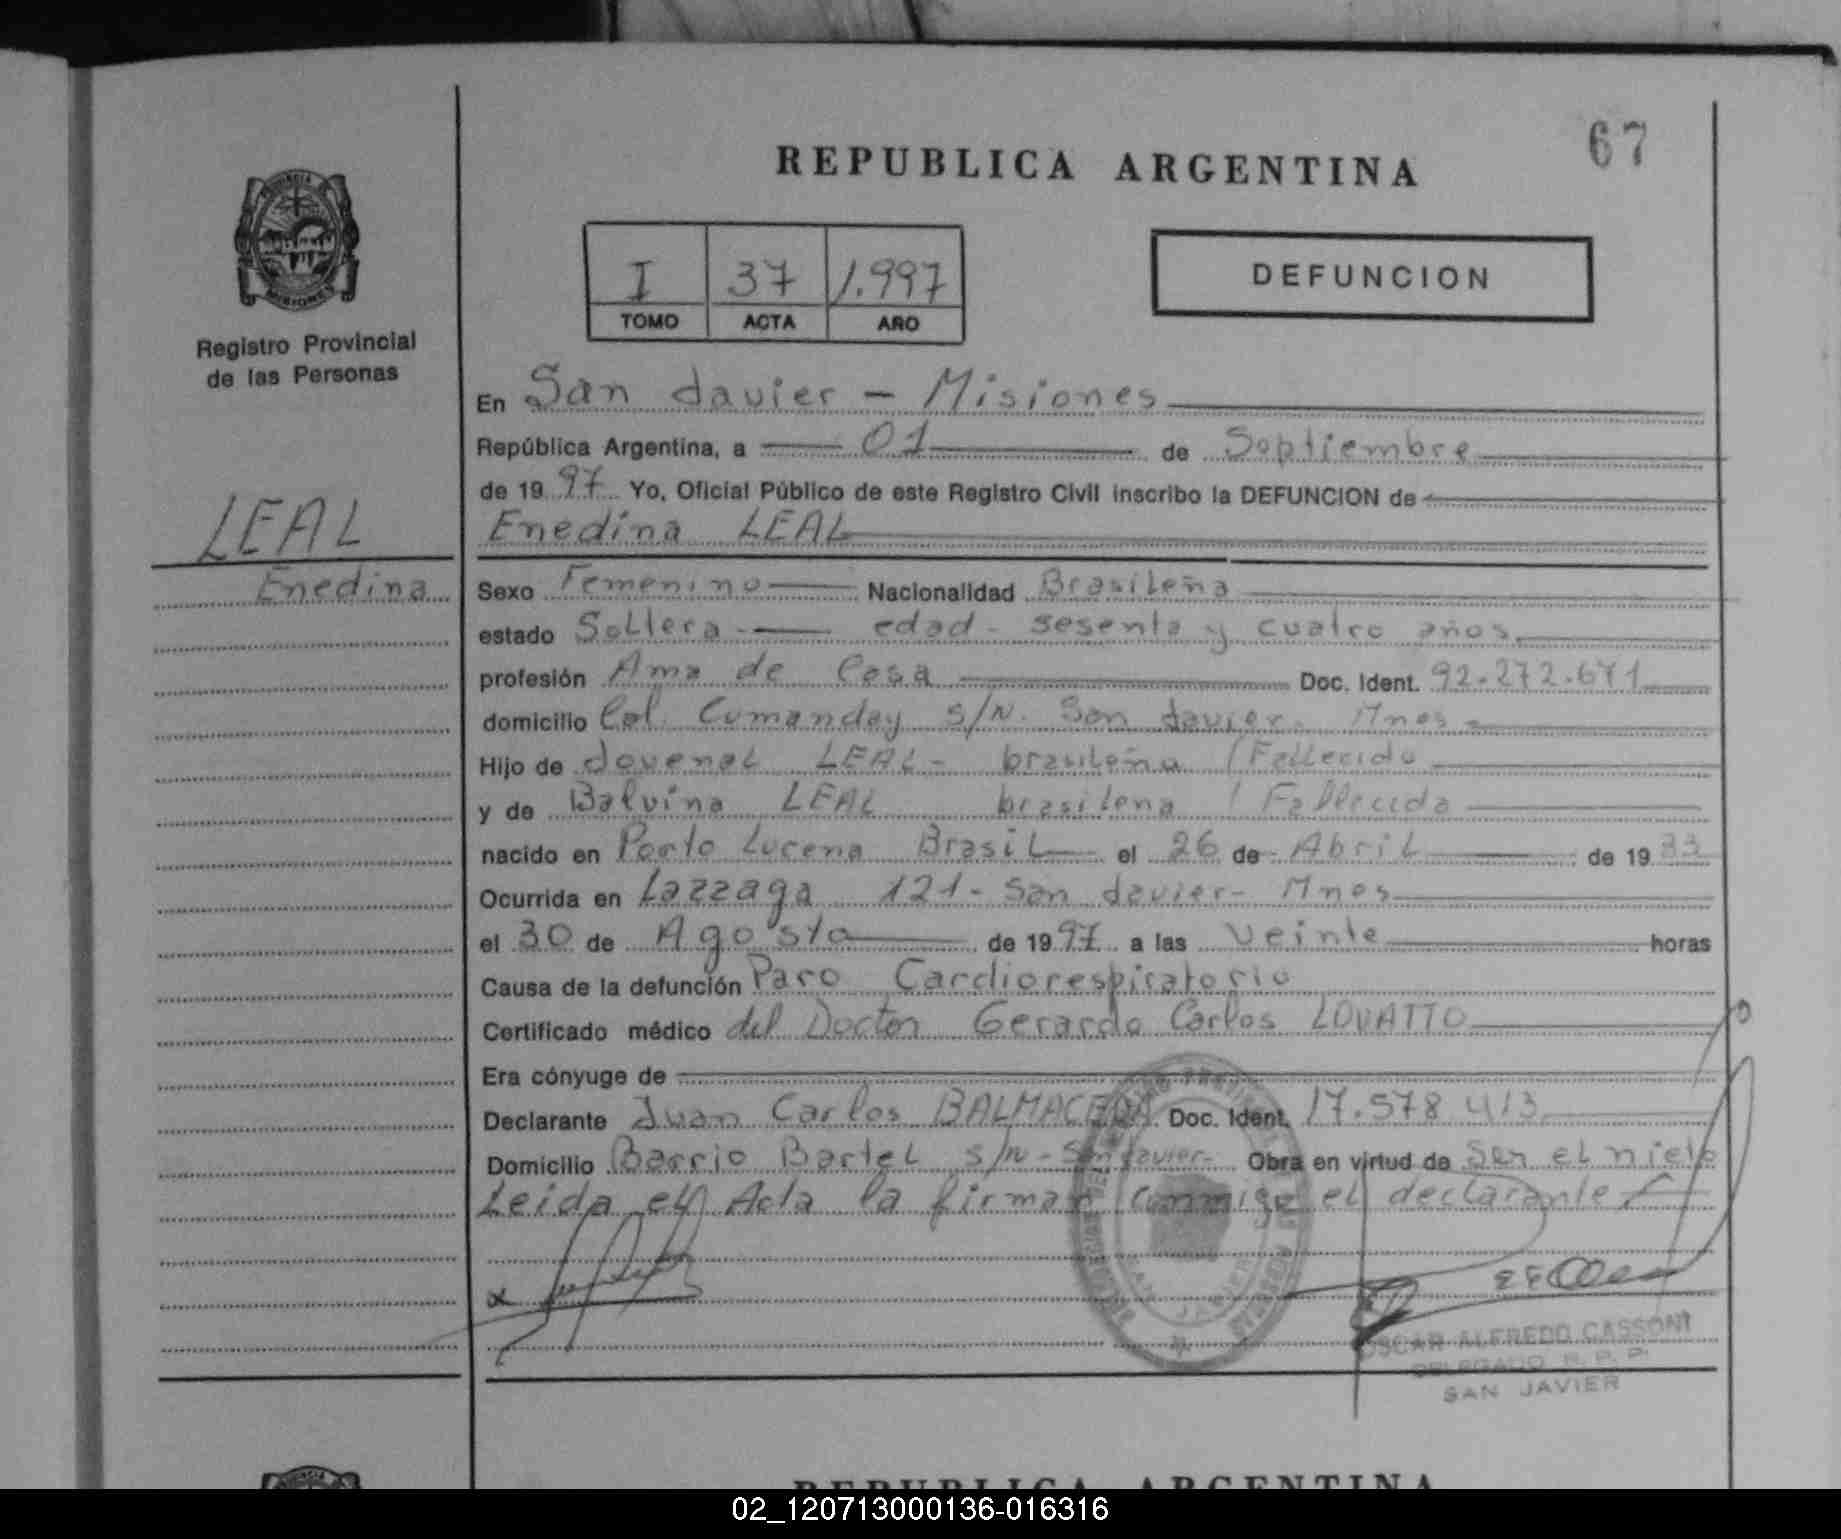 67
REPUBLICA ARGENTINA
PROVINCIA DE MISIONES
Registro Provincial
de las Personas
I 37 1.997
TOMO ACTA AÑO
DEFUNCION
En San Javier - Misiones
República Argentina, a 01 de Septiembre
de 19 97 Yo, Oficial Público de este Registro Civil inscribo la DEFUNCION de
LEAL
Enedina LEAL
Enedina
Sexo Femenino Nacionalidad Brasileña
estado Soltera edad - sesenta y cuatro años
profesión Ama de Casa Doc. Ident. 92.272.671
domicilio Col. Cumanday s/N. San Javier. Mnes
Hijo de Jovenal LEAL - brasileña / Fallecido
y de Balvina LEAL brasilena / Fallecida
nacido en Porto Lucena Brasil el 26 de Abril de 19 33
Ocurrida en Lazzaga 121 - San Javier - Mnes
el 30 de Agosto de 19 97 a las Veinte horas
Causa de la defunción Paro Cardiorespiratorio
Certificado médico del Doctor Gerardo Carlos LOVATTO
Era cónyuge de
Declarante Juan Carlos BALMACEDA Doc. Ident. 17.578.413
Domicilio Barrio Bartel s/N - San Javier - Obra en virtud de Ser el nieto
Leida el Acta la firman conmigo el declarante
OSCAR ALFREDO CASSONI
DELEGADO R. P. P.
SAN JAVIER
REPUBLICA ARGENTINA
02_120713000136-016316